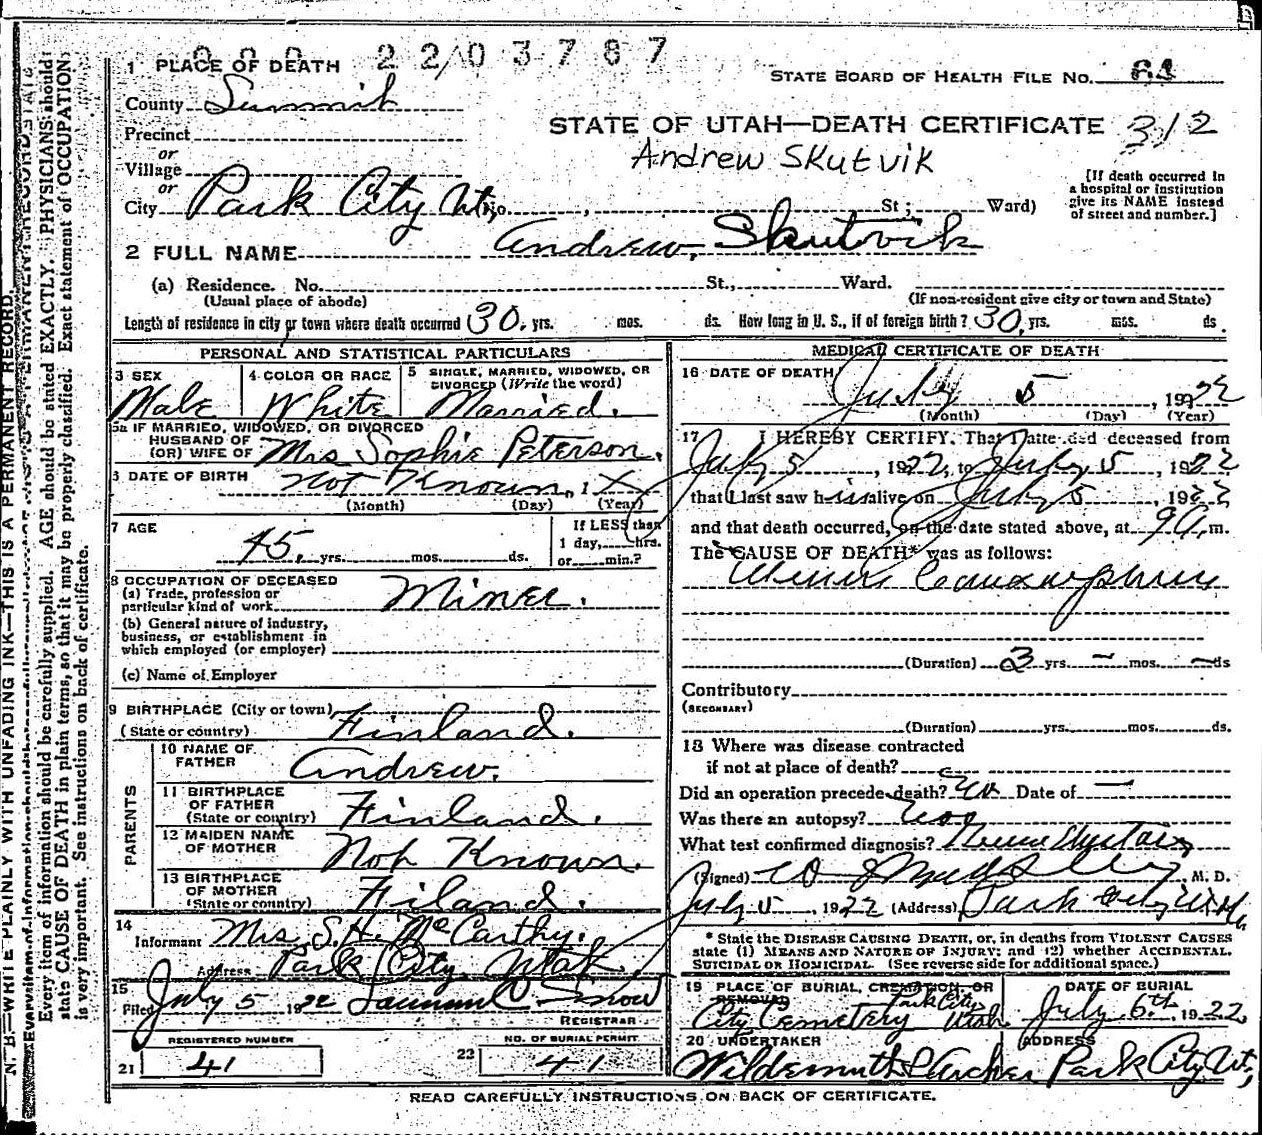 22 03787
1 PLACE OF DEATH
STATE BOARD OF HEALTH FILE No.
County Summit
STATE OF UTAH—DEATH CERTIFICATE 312
Precinct
or
Village
Andrew Skutvik
or
City Park City Ut. No. , St ; Ward)
[If death occurred in
a hospital or institution
give its NAME instead
of street and number.]
2 FULL NAME Andrew, Skutvik
(a) Residence. No. St., Ward.
(Usual place of abode) (If non-resident give city or town and State)
Length of residence in city or town where death occurred 30. yrs. mos. ds. How long in U. S., if of foreign birth? 30, yrs. mos. ds.
PERSONAL AND STATISTICAL PARTICULARS
3 SEX
Male
4 COLOR OR RACE
White
5 SINGLE, MARRIED, WIDOWED, OR
DIVORCED (Write the word)
Married.
5a IF MARRIED, WIDOWED, OR DIVORCED
HUSBAND OF
(OR) WIFE OF Mrs Sophie Peterson.
6 DATE OF BIRTH Not Known, 1
(Month) (Day) (Year)
7 AGE
45, yrs. mos. ds.
If LESS than
1 day, hrs.
or min.?
8 OCCUPATION OF DECEASED
(a) Trade, profession or
particular kind of work Miner.
(b) General nature of industry,
business, or establishment in
which employed (or employer)
(c) Name of Employer
9 BIRTHPLACE (City or town)
(State or country) Finland.
PARENTS
10 NAME OF
FATHER Andrew.
11 BIRTHPLACE
OF FATHER
(State or country) Finland.
12 MAIDEN NAME
OF MOTHER Not Known.
13 BIRTHPLACE
OF MOTHER
(State or country) Filand.
14
Informant Mrs. S. H. McCarthy.
Address Park City, Utah.
15
Filed July 5 1922 Snow
REGISTRAR
REGISTERED NUMBER
21 41
NO. OF BURIAL PERMIT
22 41
MEDICAL CERTIFICATE OF DEATH
16 DATE OF DEATH
July 5, 1922
(Month) (Day) (Year)
17 I HEREBY CERTIFY, That I attended deceased from
July 5, 1922, to July 5, 1922
that I last saw him alive on July 5, 1922
and that death occurred, on the date stated above, at 9 A. m.
The CAUSE OF DEATH* was as follows:
(Duration) 3 yrs. — mos. — ds
Contributory
(SECONDARY)
(Duration) yrs. mos. ds.
18 Where was disease contracted
if not at place of death?
Did an operation precede death? No Date of —
Was there an autopsy?
What test confirmed diagnosis?
(Signed) M. D.
July 5, 1922 (Address) Park City Utah
* State the DISEASE CAUSING DEATH, or, in deaths from VIOLENT CAUSES
state (1) MEANS AND NATURE OF INJURY; and (2) whether ACCIDENTAL,
SUICIDAL OR HOMICIDAL. (See reverse side for additional space.)
19 PLACE OF BURIAL, CREMATION, OR
REMOVAL Park City,
City Cemetery Utah.
DATE OF BURIAL
July 6th 1922,
20 UNDERTAKER
Wildemuth & Archer
ADDRESS
Park City, Ut,
READ CAREFULLY INSTRUCTIONS ON BACK OF CERTIFICATE.
N. B.—WRITE PLAINLY WITH UNFADING INK—THIS IS A PERMANENT RECORD.
Every item of information should be carefully supplied. AGE should be stated EXACTLY. PHYSICIANS should
state CAUSE OF DEATH in plain terms, so that it may be properly classified. Exact statement of OCCUPATION
is very important. See instructions on back of certificate.